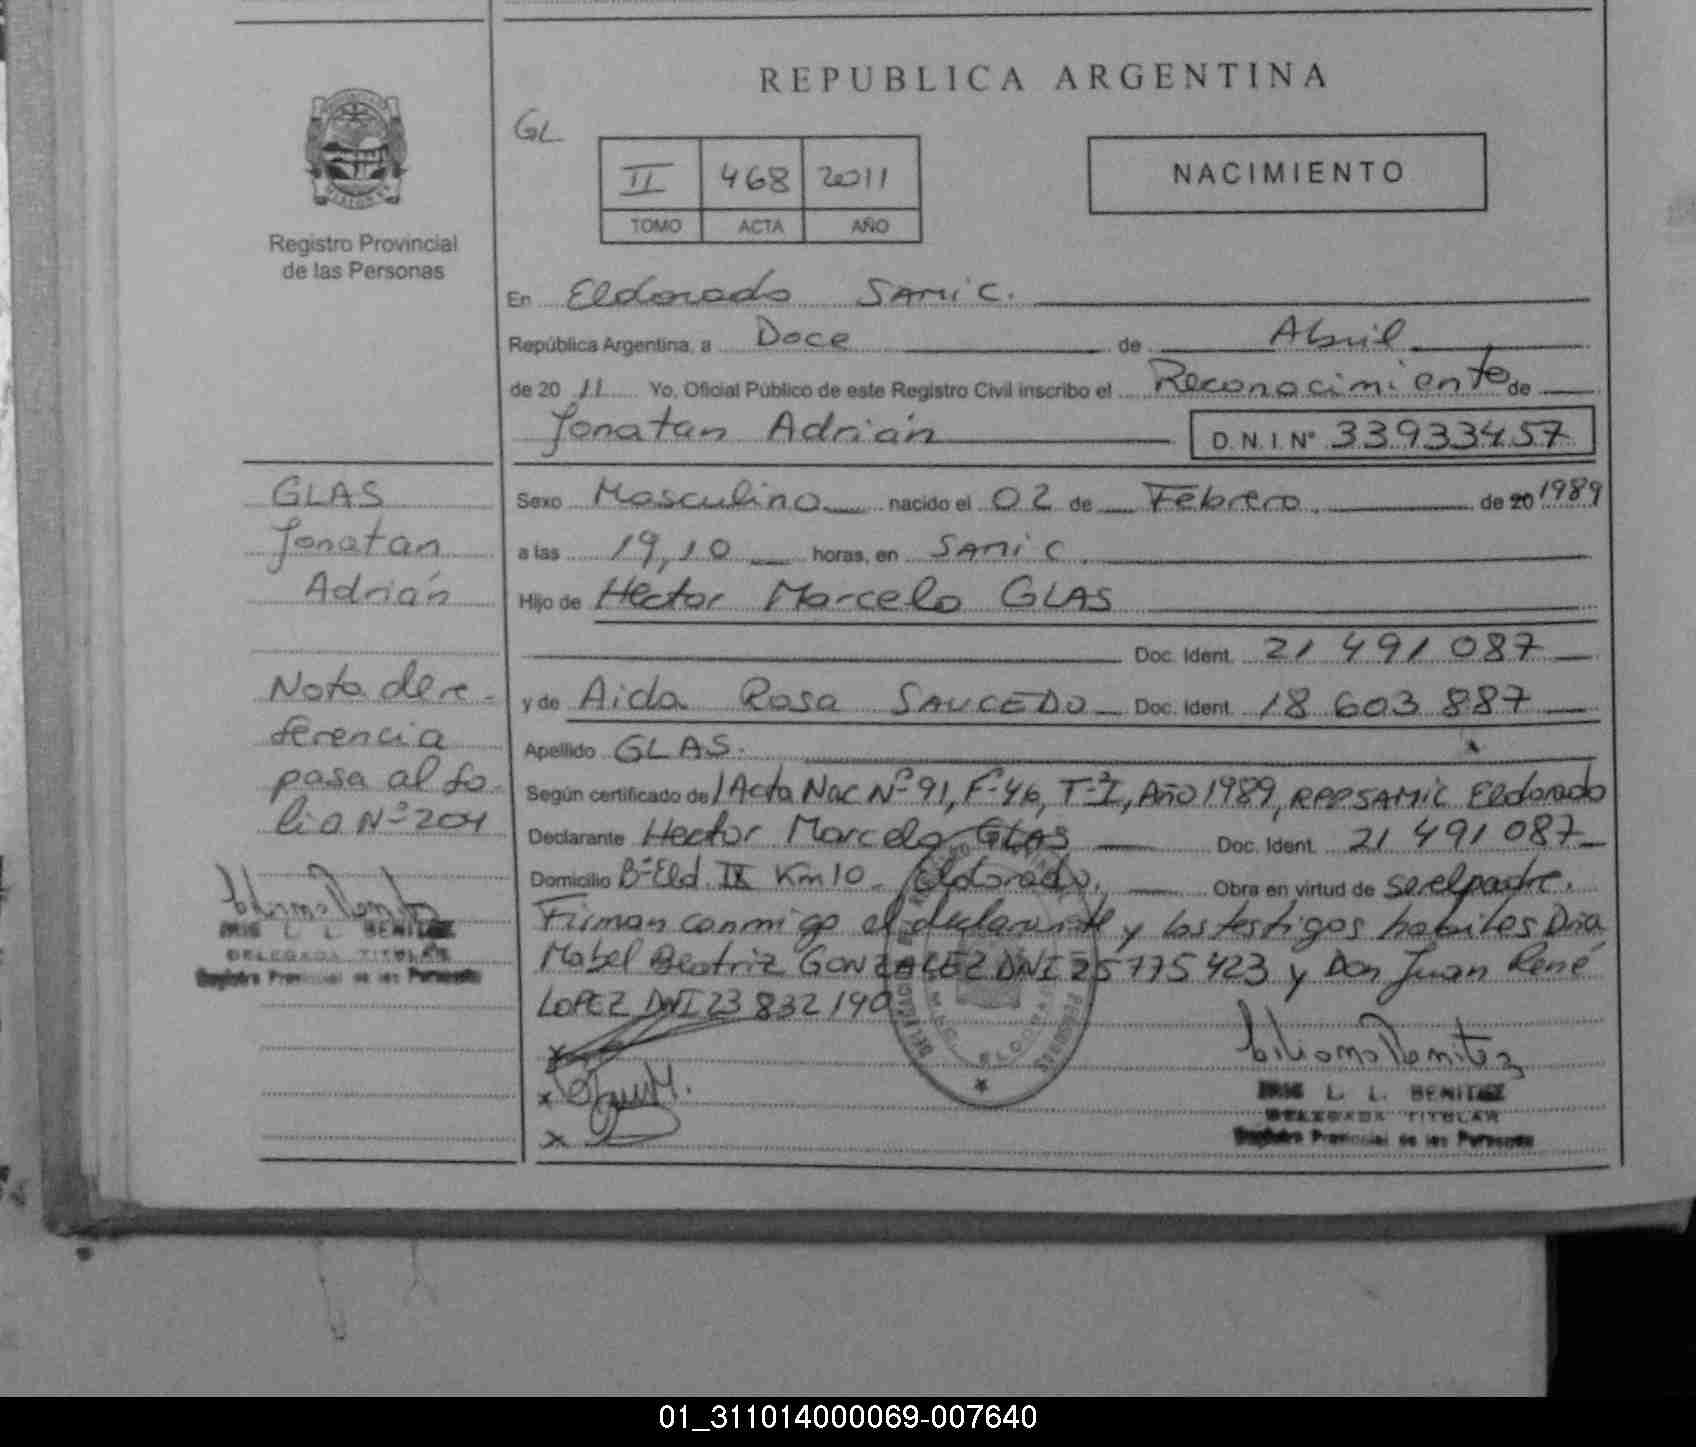 REPUBLICA ARGENTINA
GL
II 468 2011
TOMO ACTA AÑO
NACIMIENTO
Registro Provincial
de las Personas
En Eldorado SAMIC.
República Argentina, a Doce de Abril
de 20 11 Yo, Oficial Público de este Registro Civil inscribo el Reconocimiento de
Jonatan Adrián D.N.I. Nº 33933457
GLAS
Jonatan
Adrián
Nota de re-
ferencia
pasa al fo-
lio Nº 204
IRIS L. L. BENITEZ
DELEGADA TITULAR
Registro Provincial de las Personas
Sexo Masculino nacido el 02 de Febrero de 20 1989
a las 19,10 horas, en SAMIC
Hijo de Hector Marcelo GLAS
Doc. Ident. 21 491 087
y de Aida Rosa SAUCEDO Doc. Ident. 18 603 887
Apellido GLAS.
Según certificado de Acta Nac Nº 91, Fº 46, Tº I, Año 1989, RPPSAMIC Eldorado
Declarante Hector Marcelo GLAS Doc. Ident. 21 491 087
Domicilio Bº Eld. IX Km 10 Eldorado. Obra en virtud de ser el padre.
Firman conmigo el declarante y los testigos habiles Dña
Mabel Beatriz GONZALEZ DNI 25775423 y Don Juan René
LOPEZ DNI 23 832 190
x
x
x
IRIS L. L. BENITEZ
DELEGADA TITULAR
Registro Provincial de las Personas
01_311014000069-007640